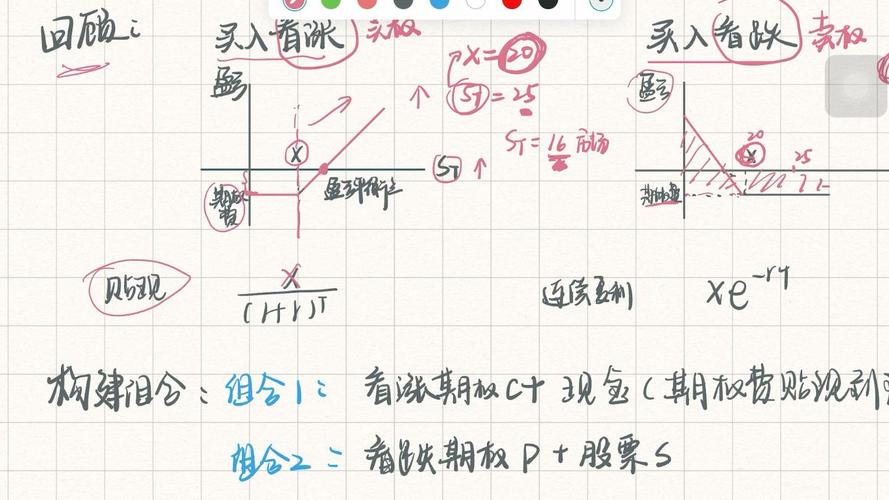 回顾：
买入看涨 买权
买入看跌 卖权
盈亏
X=20
ST=25
ST=16 市场
X
ST
期权费
盈亏平衡点
盈亏
20
X
25
期权费
贴现
X
(1+r)T
连续复利
xe-rT
构建组合：组合1：看涨期权C+现金(期权费贴现到
组合2：看跌期权P+股票S